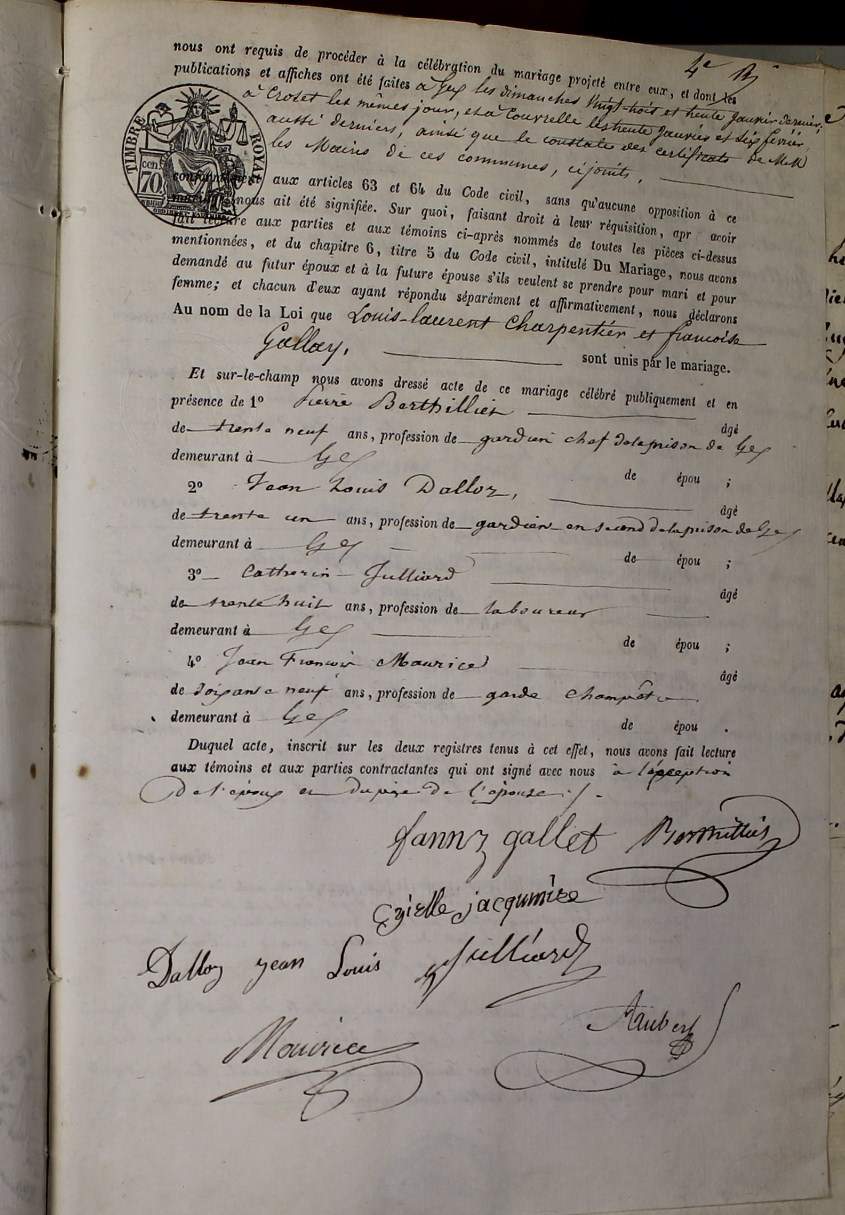 4e
nous ont requis de procéder à la célébration du mariage projeté entre eux, et dont les
publications et affiches ont été faites à Gex les dimanches vingt trois et trente janvier dernier,
à Crozet les mêmes jour, et à Couvrelle les trente janvier et six fevrier
aussi derniers, ainsi que le constate des certificats de MM
les Maires de ces communes, cijoints,
TIMBRE ROYAL
cen. 70
conformément aux articles 63 et 64 du Code civil, sans qu'aucune opposition à ce
mariage nous ait été signifiée. Sur quoi, faisant droit à leur réquisition, apr avoir
fait lecture aux parties et aux témoins ci-après nommés de toutes les pièces ci-dessus
mentionnées, et du chapitre 6, titre 5 du Code civil, intitulé Du Mariage, nous avons
demandé au futur époux et à la future épouse s'ils veulent se prendre pour mari et pour
femme; et chacun d'eux ayant répondu séparément et affirmativement, nous déclarons
Au nom de la Loi que Louis-laurent Charpentier et francoise
Gallay, sont unis par le mariage.
Et sur-le-champ nous avons dressé acte de ce mariage célébré publiquement et en
présence de 1º Pierre Berthillier âgé
de trente neuf ans, profession de gardien chef de la prison de Gex
demeurant à Gex de épou ;
2º Jean Louis Dalloz, âgé
de trente un ans, profession de gardien en second de la prison de Gex
demeurant à Gex de épou ;
3º Catherin Julliard âgé
de trente huit ans, profession de laboureur
demeurant à Gex de épou ;
4º Jean Francois Maurice âgé
de soixante neuf ans, profession de garde champêtre
demeurant à Gex de épou .
Duquel acte, inscrit sur les deux registres tenus à cet effet, nous avons fait lecture
aux témoins et aux parties contractantes qui ont signé avec nous à l'éxception
de l'époux et du père de l'épouse ./.
fanny gallet Berthillier
jacqumire
Dalloz jean Louis Julliard
Maurice